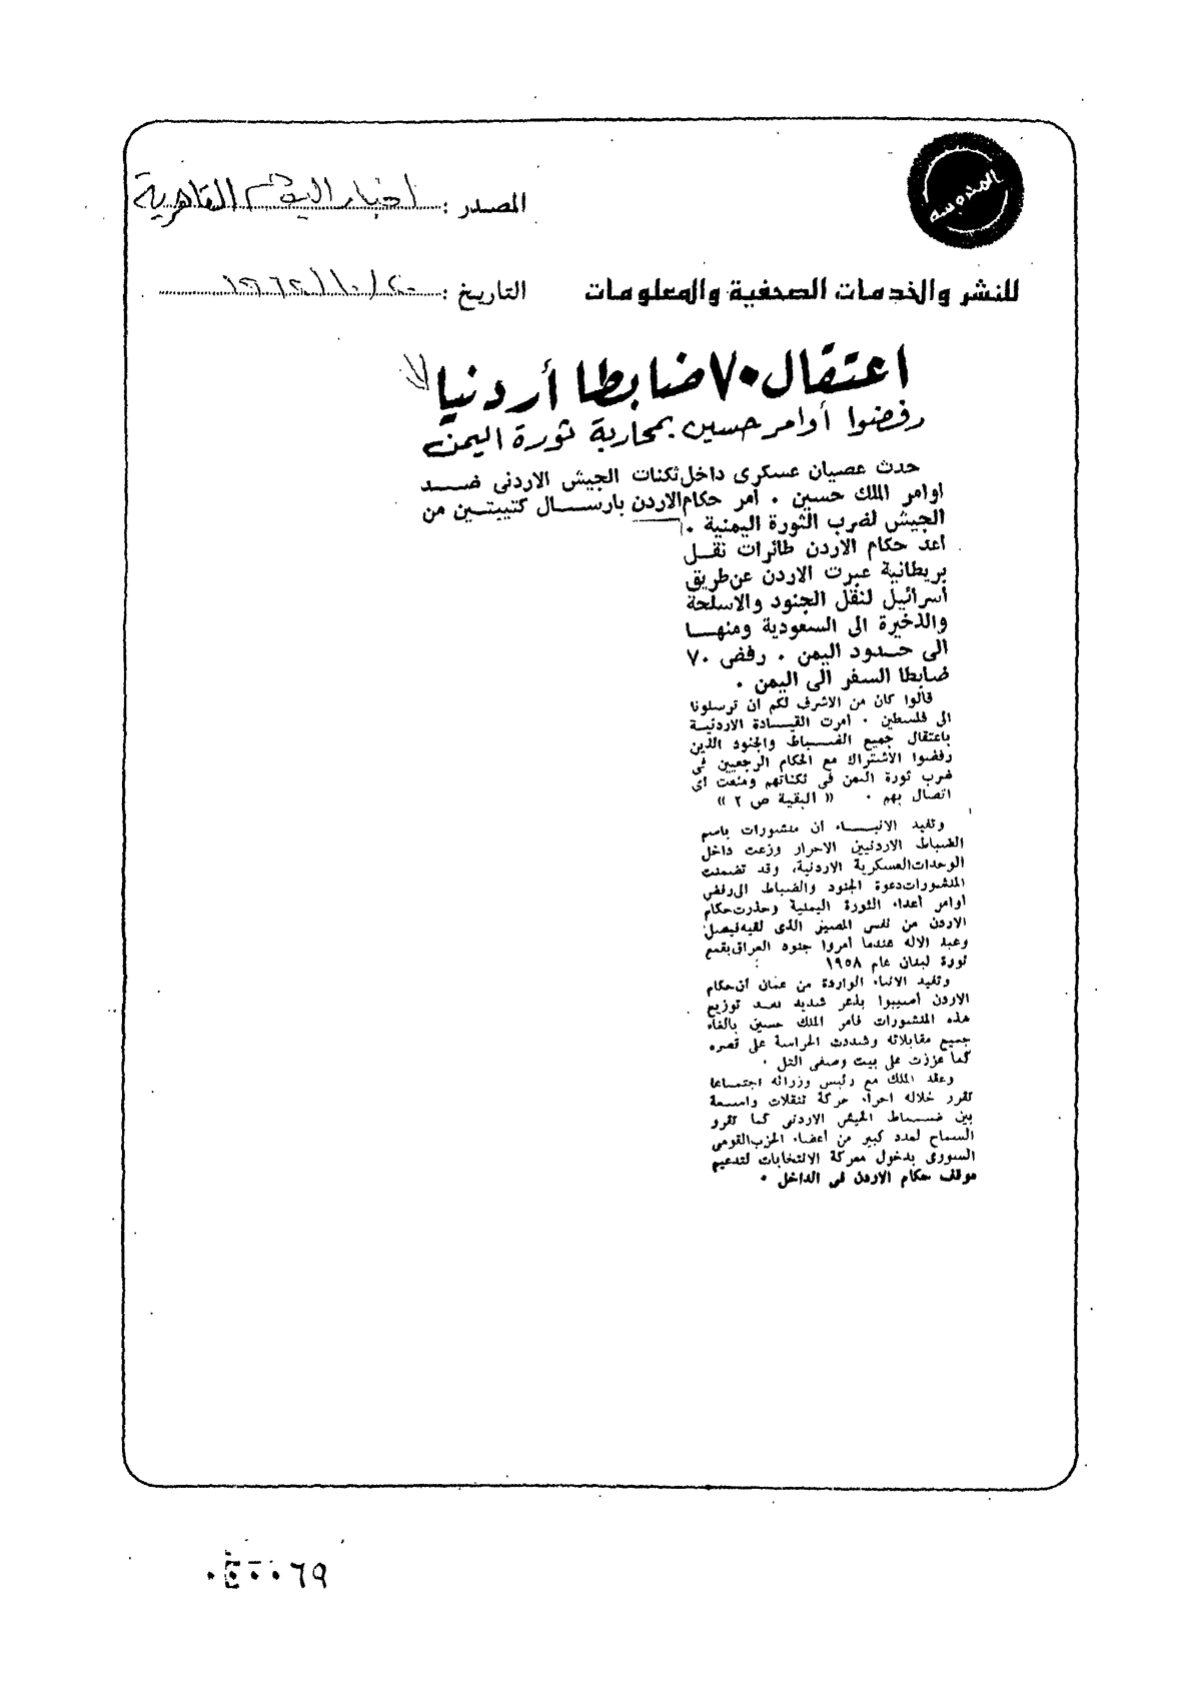 المحروسة
المصدر : أخبار اليوم القاهرية
للنشر والخدمات الصحفية والمعلومات
التاريخ : ٢٠ / ١٠ / ١٩٦٢
اعتقال ٧٠ ضابطا أردنيا
رفضوا أوامر حسين بمحاربة ثورة اليمن
حدث عصيان عسكرى داخل ثكنات الجيش الاردنى ضد
اوامر الملك حسين . أمر حكام الاردن بارسال كتيبتين من
الجيش لضرب الثورة اليمنية .
أعد حكام الاردن طائرات نقل
بريطانية عبرت الاردن عن طريق
أسرائيل لنقل الجنود والاسلحة
والذخيرة الى السعودية ومنها
الى حدود اليمن . رفض ٧٠
ضابطا السفر الى اليمن .
قالوا كان من الاشرف لكم ان ترسلونا
الى فلسطين . أمرت القيادة الاردنية
باعتقال جميع الضباط والجنود الذين
رفضوا الاشتراك مع الحكام الرجعيين فى
ضرب ثورة اليمن فى ثكناتهم ومنعت اى
اتصال بهم . « البقية ص ٢ »
وتفيد الانباء أن منشورات باسم
الضباط الاردنيين الاحرار وزعت داخل
الوحدات العسكرية الاردنية، وقد تضمنت
المنشورات دعوة الجنود والضباط الى رفض
أوامر أعداء الثورة اليمنية وحذرت حكام
الاردن من نفس المصير الذى لقيه فيصل
وعبد الاله عندما أمروا جنود العراق بقمع
ثورة لبنان عام ١٩٥٨
وتفيد الانباء الواردة من عمان أن حكام
الاردن أصيبوا بذعر شديد بعد توزيع
هذه المنشورات فأمر الملك حسين بالغاء
جميع مقابلاته وشددت الحراسة على قصره
كما عززت على بيت وصفى التل .
وعقد الملك مع رئيس وزرائه اجتماعا
تقرر خلاله اجراء حركة تنقلات واسعة
بين ضباط الجيش الاردنى كما تقرر
السماح لعدد كبير من أعضاء الحزب القومى
السورى بدخول معركة الانتخابات لتدعيم
موقف حكام الاردن فى الداخل .